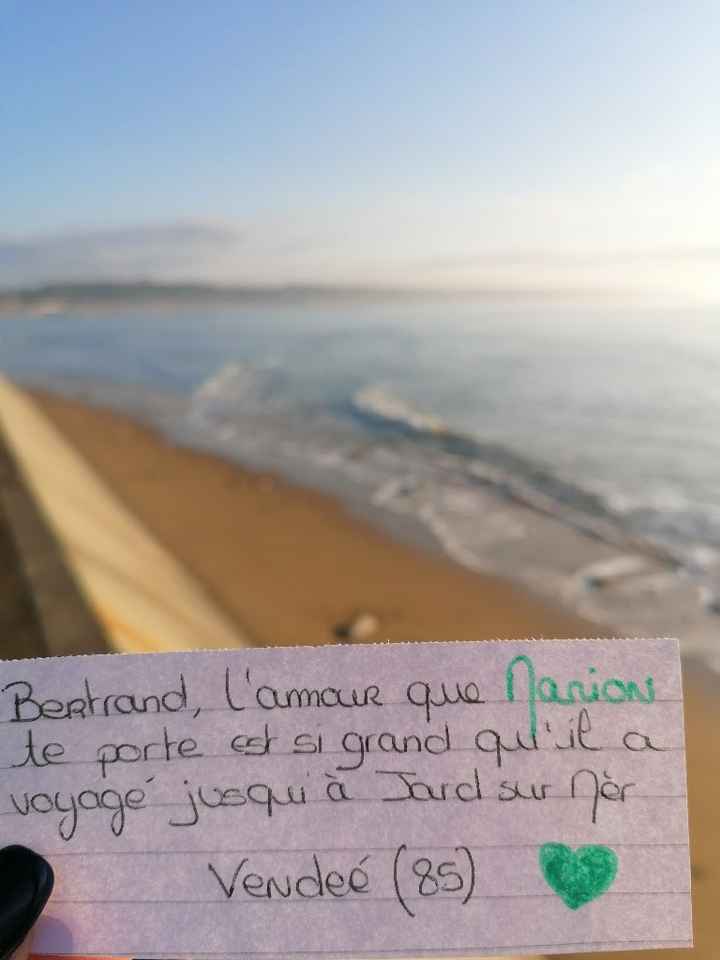 Bertrand, l'amour que Marion
te porte est si grand qu'il a
voyagé jusqu'à Jard sur Mèr
Vendeé (85)